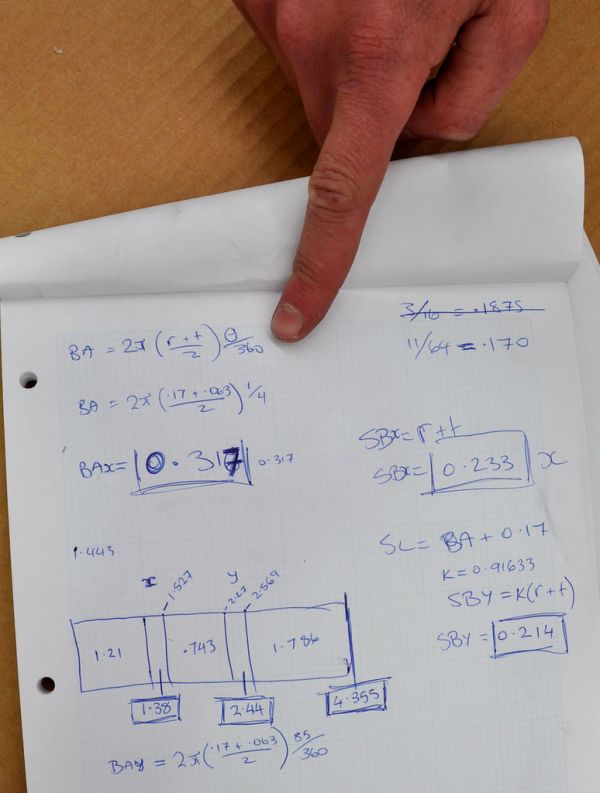 3/16 = .1875
11/64 = .170
BA = 2π(r+t/2)θ/360
BA = 2π(.17+.063/2)1/4
BAx = 0.317 0.317
SBx = r+t
SBx = 0.233 x
SL = BA + 0.17
K = 0.91633
SBY = K(r+t)
SBY = 0.214
1.443
x 1.527 y 2.27 2.569
1.21 .743 1.786
1.38 2.44 4.355
BAy = 2π(.17+.063/2)85/360